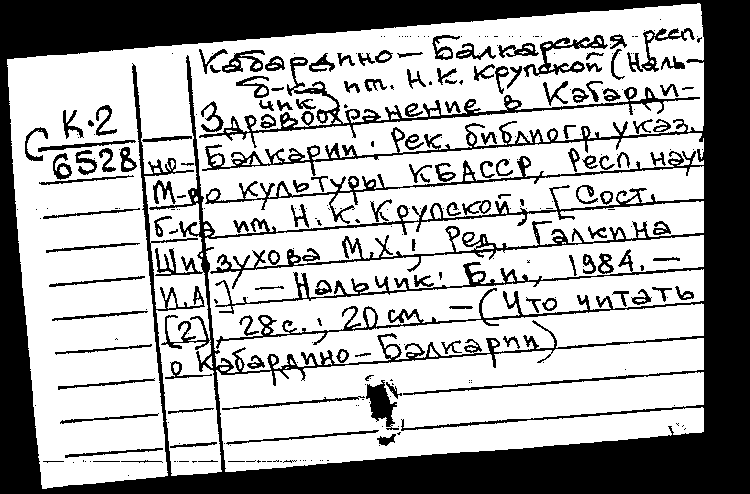 Кабардино-Балкарская респ.
б-ка им. Н.К. Крупской (Наль-
чик)
С К.2
6528
Здравоохранение в Кабарди-
но-Балкарии: Рек. библиогр. указ.
М-во культуры КБАССР, Респ. науч
б-ка им. Н.К. Крупской; [Сост.
Шибзухова М.Х.; Ред. Галкина
И.А.]. — Нальчик: Б.и., 1984. —
[2], 28 с.; 20 см. — (Что читать
о Кабардино-Балкарии)